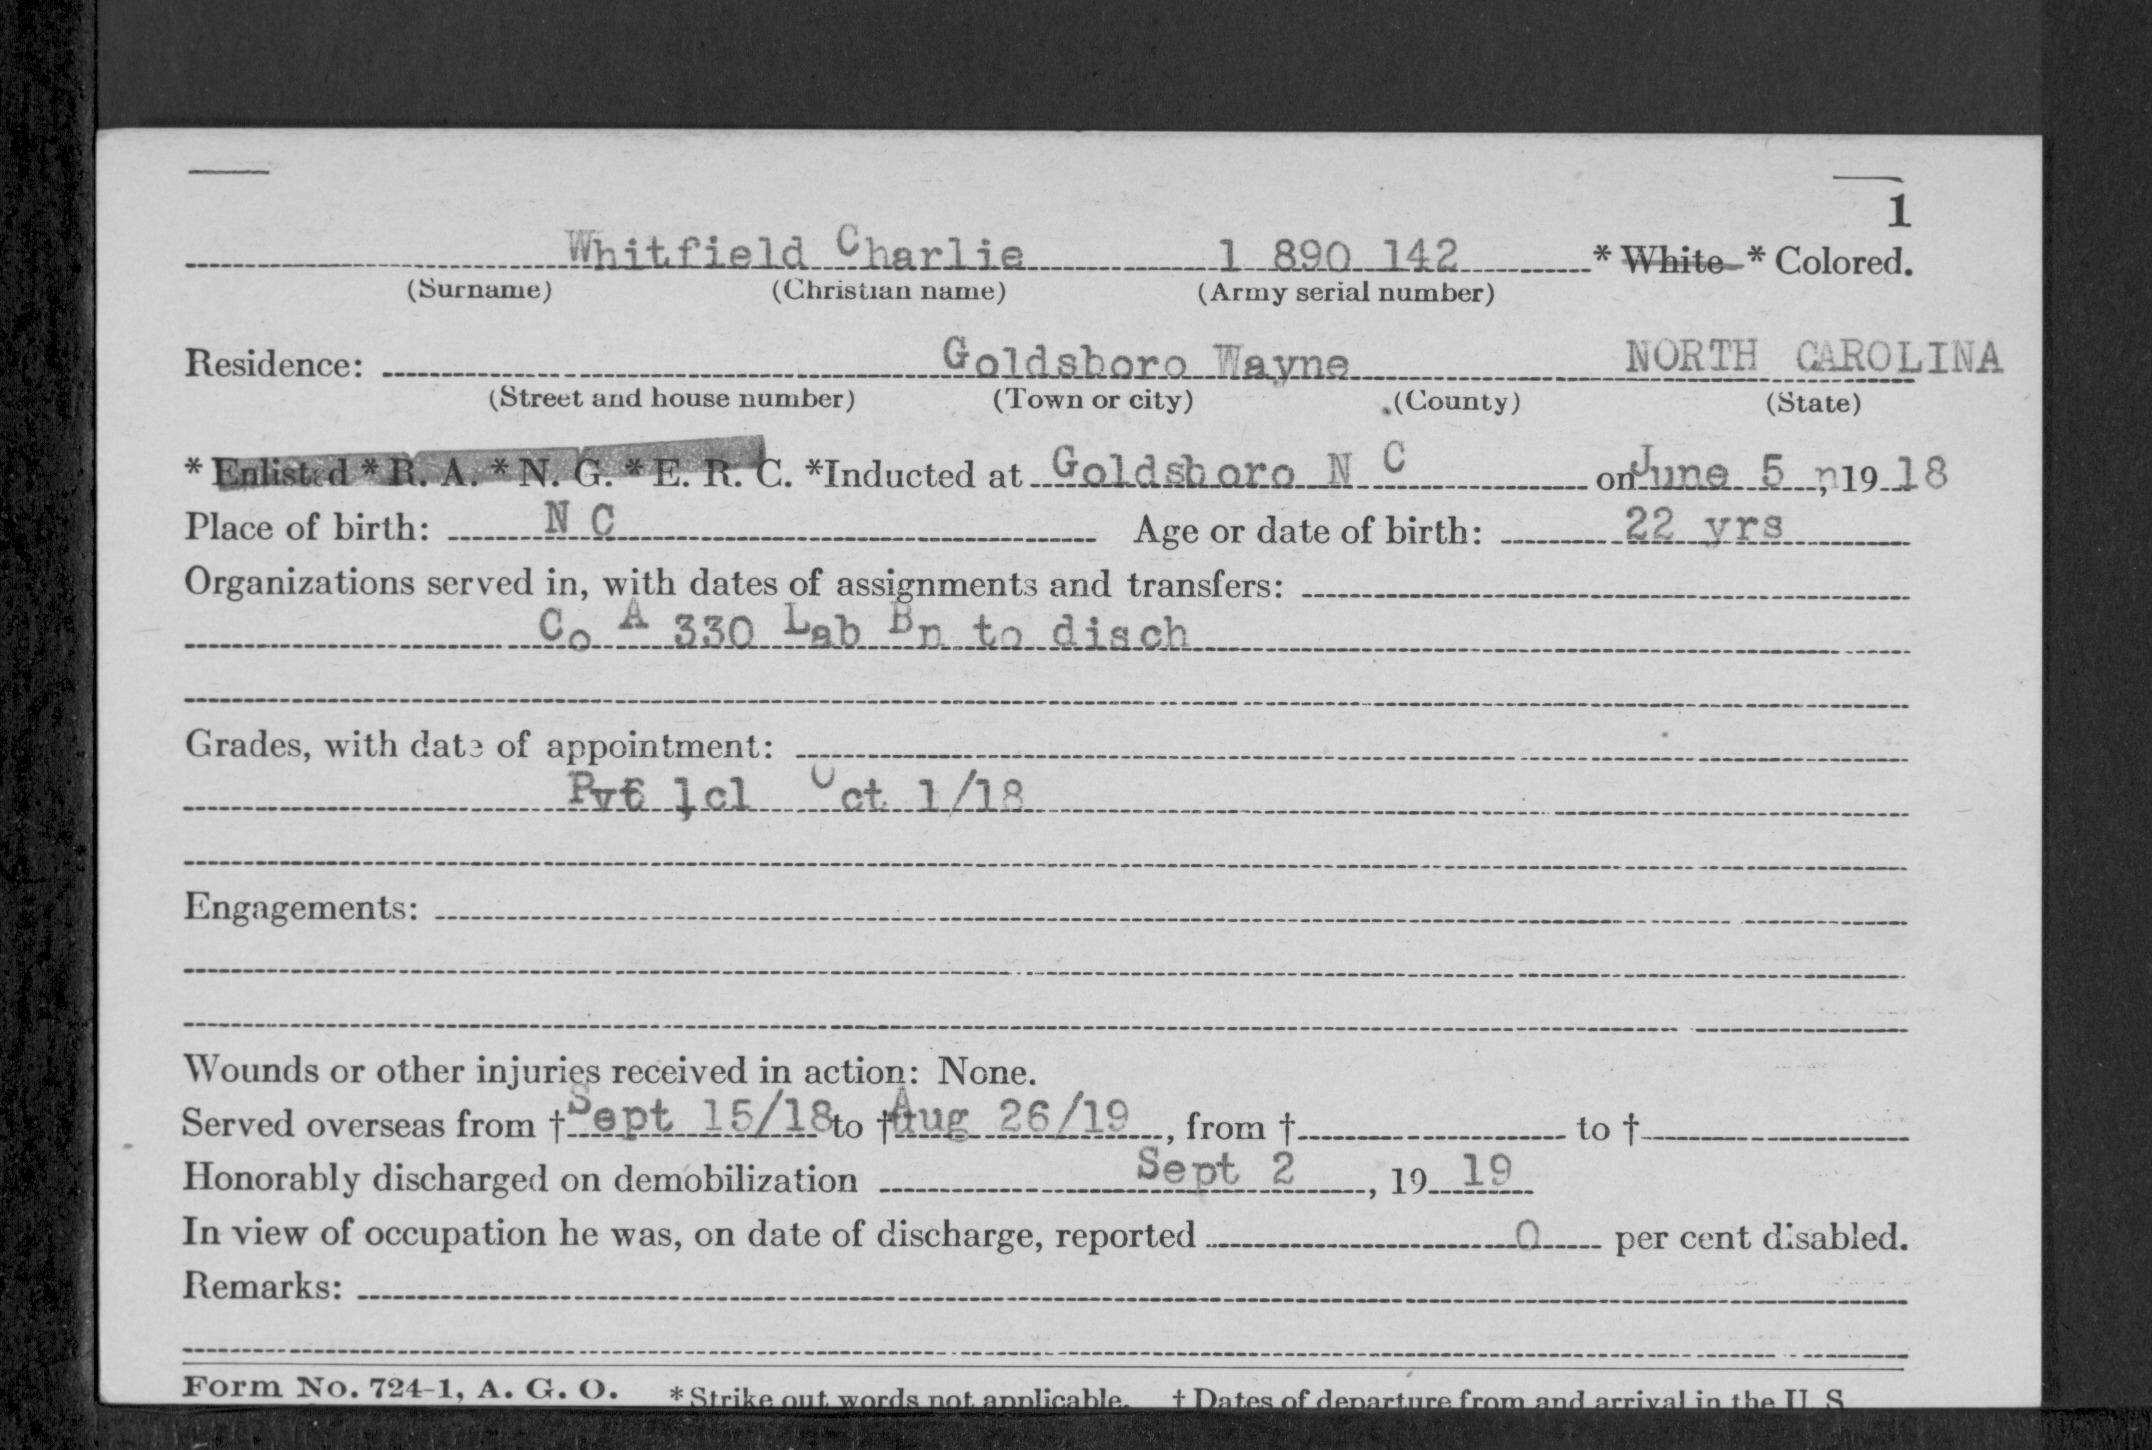 1
Whitfield Charlie 1 890 142 * White * Colored.
(Surname) (Christian name) (Army serial number)
Residence: Goldsboro Wayne NORTH CAROLINA
(Street and house number) (Town or city) (County) (State)
* Enlisted * R. A. * N. G. * E. R. C. *Inducted at Goldsboro N C on June 5 n, 19 18
Place of birth: N C Age or date of birth: 22 yrs
Organizations served in, with dates of assignments and transfers:
Co A 330 Lab Bn to disch
Grades, with date of appointment:
Pvt 1cl Oct 1/18
Engagements:
Wounds or other injuries received in action: None.
Served overseas from † Sept 15/18 to † Aug 26/19, from † to †
Honorably discharged on demobilization Sept 2, 19 19
In view of occupation he was, on date of discharge, reported 0 per cent disabled.
Remarks:
Form No. 724-1, A. G. O. * Strike out words not applicable. † Dates of departure from and arrival in the U S